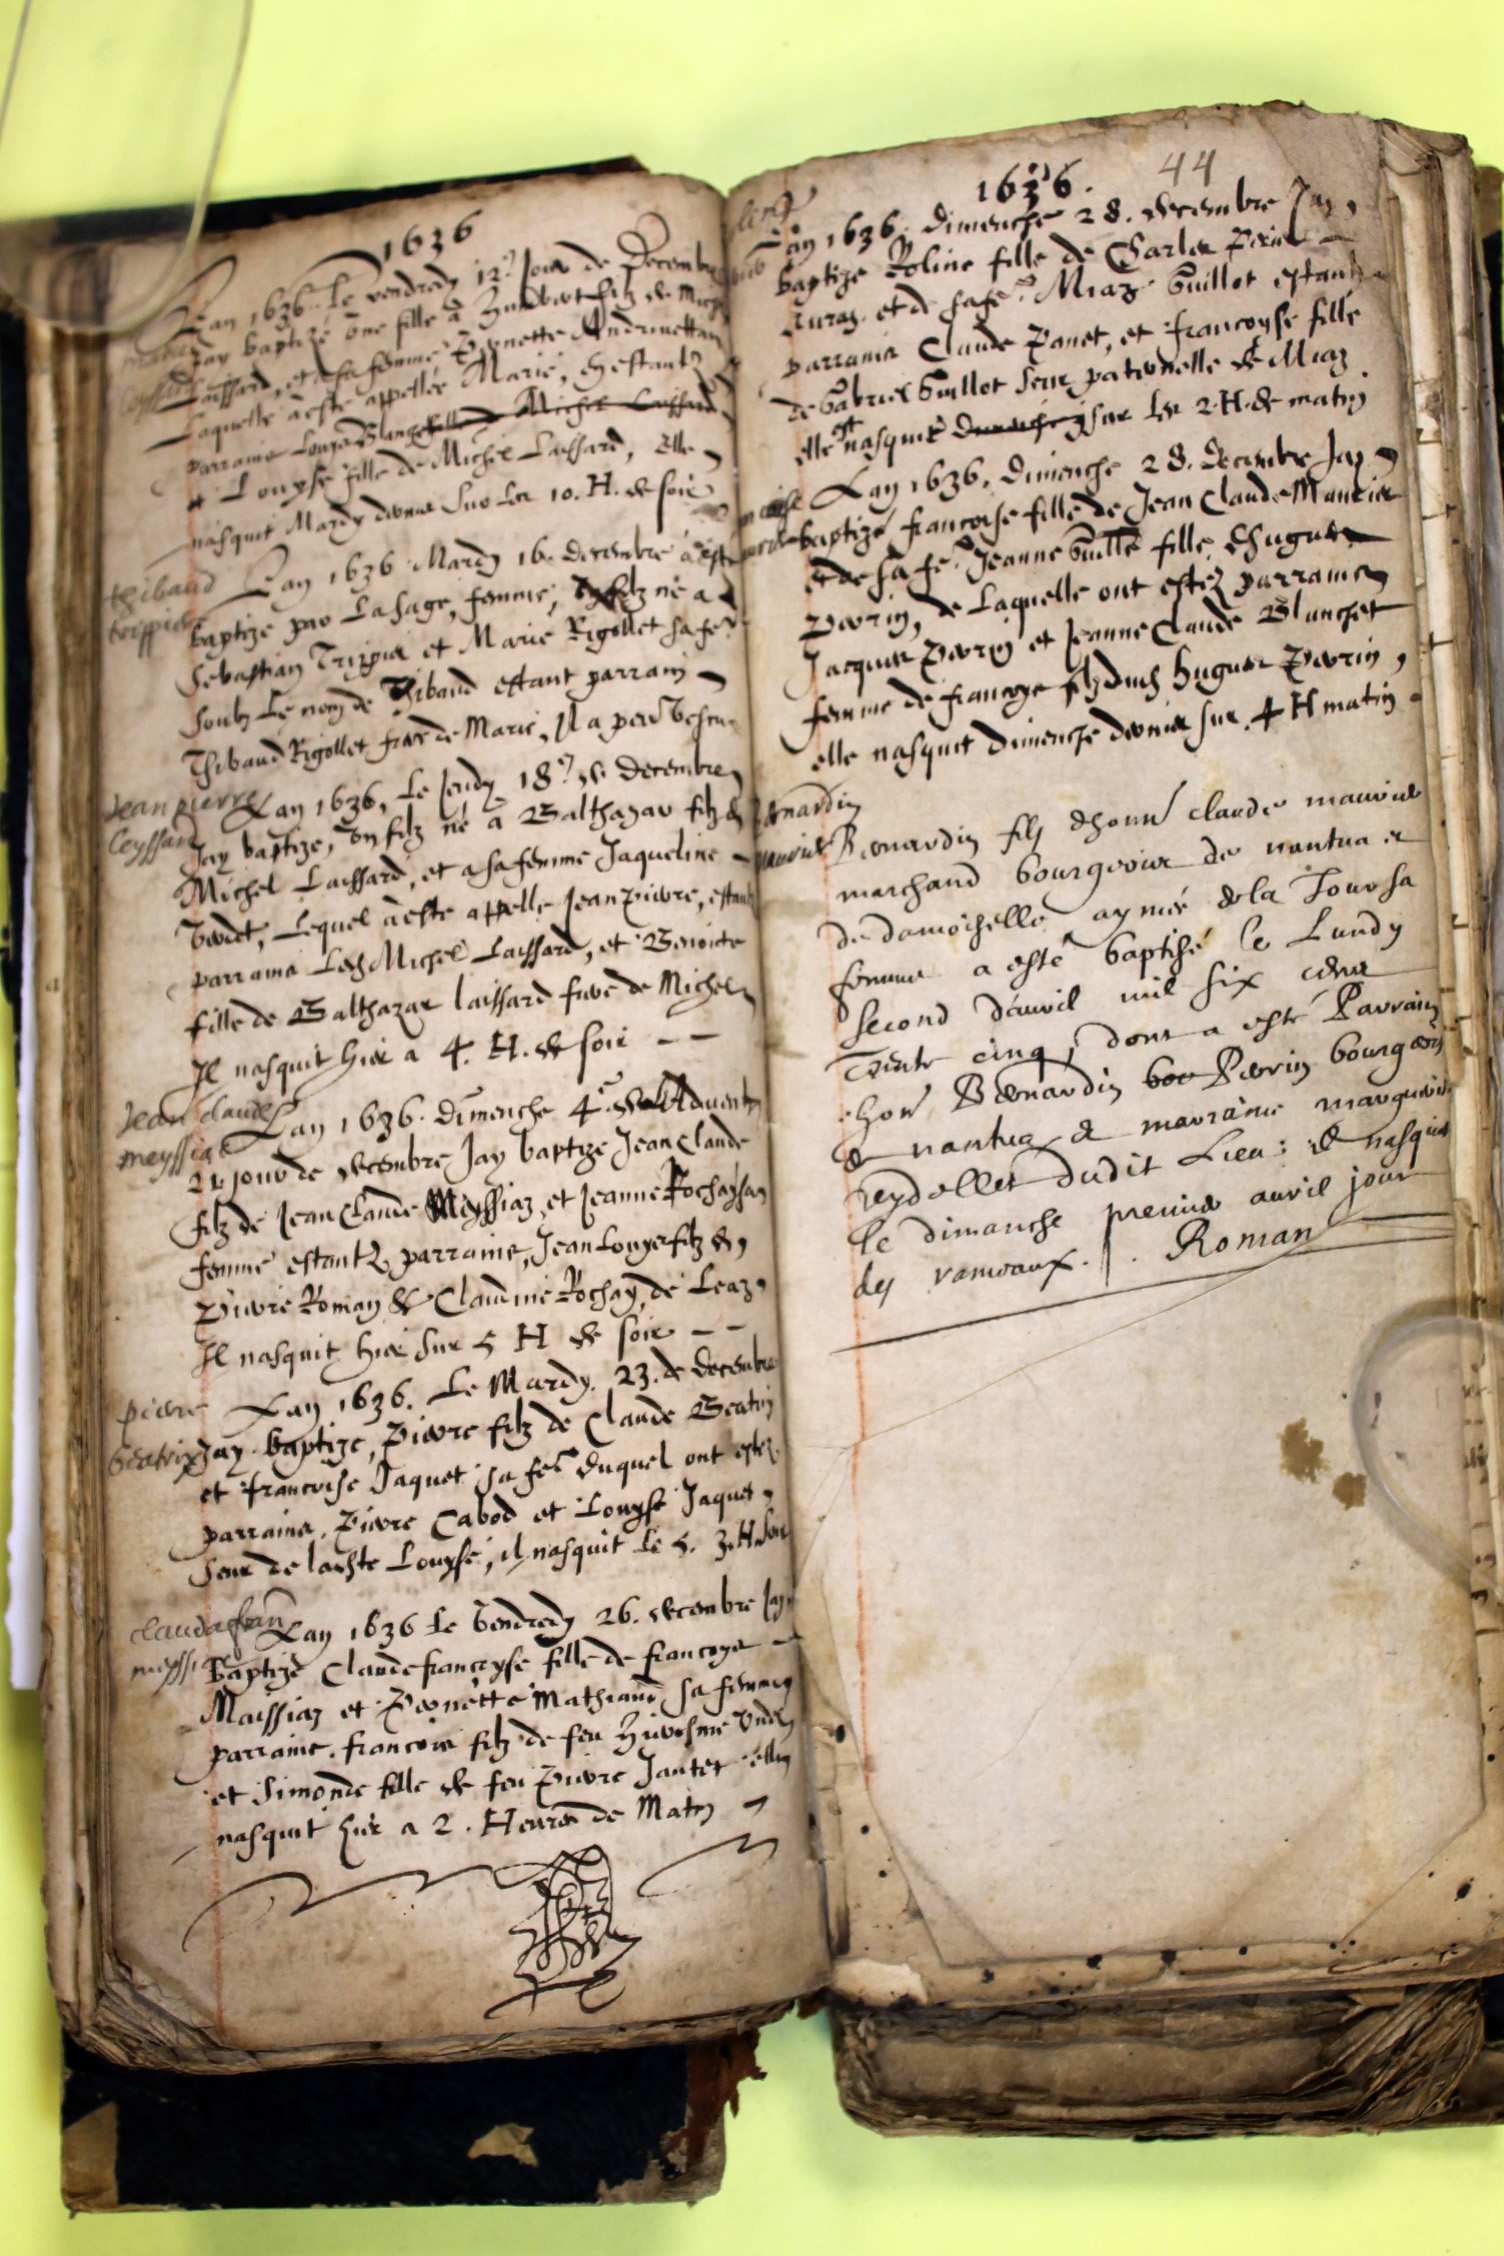 1636
Lan 1636. Le vendredy 12e Jour de Decembre
Jay baptizé une fille a Humbert filz de Michel
Laissard, et a sa femme Pernette Andrinettaz
Laquelle a esté appellée Marie, estantz
parrains Louys Blanchet
et Louyse fille de Michel Laissard, elle
nasquit Mardy dernier sur les 10. H. de soir
thibaud
trippier
Lan 1636 Mardy 16. decembre a esté
baptizé par La sage femme, un filz né a
Sebastian Trippier et Marie Rigollet sa fe.
soubz Le nom de Thibaud estant parrain
Thibaud Rigollet frere de Marie, Il a peu vescu
Jean pierre
Leyssard
Lan 1636, Le Jeudy 18e de decembre
Jay baptizé, un filz né a Balthazar filz de
Michel Laissard, et a sa femme Jaqueline
Verdet, Lequel a esté appellé Jean Pierre, estant
parrains Ledt Michel Laissard, et Benoicte
fille de Balthazar Laissard frere de Michel
Il nasquit hier a 4. H. de soir
Jean claude
meyssiat
Lan 1636. Dimenche 4e de l'Advent
21 jour de decembre Jay baptizé Jean Claude
filz de Jean Claude Meyssiaz, et Jeanne Rochay sa
femme estantz parrains, Jean Louys filz de
Pierre Roman & Claudine Rochay, de Leaz
Il nasquit hier sur 5 H de soir
pierre
beatrix
Lan 1636. Le Mardy. 23. de decembre
Jay baptizé, Pierre filz de Claude Beatrix
et Francoise Jaquet sa fe. duquel ont estez
parrains. Pierre Cabod et Louyse Jaquet
seur de ladite Louyse, il nasquit le 5. 3. H. soir
claudafran
meyssiat
Lan 1636 Le Vendredy 26. decembre Jay
Baptizé Claude francoyse fille de francoys
Maissiaz et Pernette Mathiand sa femme
parrains. francois filz de feu Hierosme
et Simonde fille de feu Pierre Jantet elle
nasquit hier a 2. Heures de Matin
44
1636
Lan 1636. Dimenche 28. decembre Jay
baptizé Roline fille de Charles Perin
et de sa fe. Miaz Guillot estantz
parrains Claude Panet, et francoyse fille
de Gabriel Guillot seur paternelle de Miaz
elle nasquit sur les 2. H. de matin
Lan 1636, Dimenche 28. decembre Jay
baptizé francoise fille de Jean Claude Maurier
et de sa fe. Jeanne fille d'Hugues
Perrin, de Laquelle ont estez parrains
Jacques Perrin et Jeanne Claude Blanchet
femme de francoys filz dudt Hugues Perrin,
elle nasquit dimenche dernier sur 4 H matin
Bernardin
Maurier
Bernardin filz d'honn claude maurier
marchand bourgeois de nantua et
de damoiselle aymée de la Tour sa
femme a esté baptisé le Lundy
second d'auril mil six cens
trente cinq, dont a esté Parrain
hon Bernardin Perrin bourgeois
de nantua & marraine marguerite
reydellet dudit Lieu: & nasquit
le dimanche premier auril jour
des rameaux. Roman